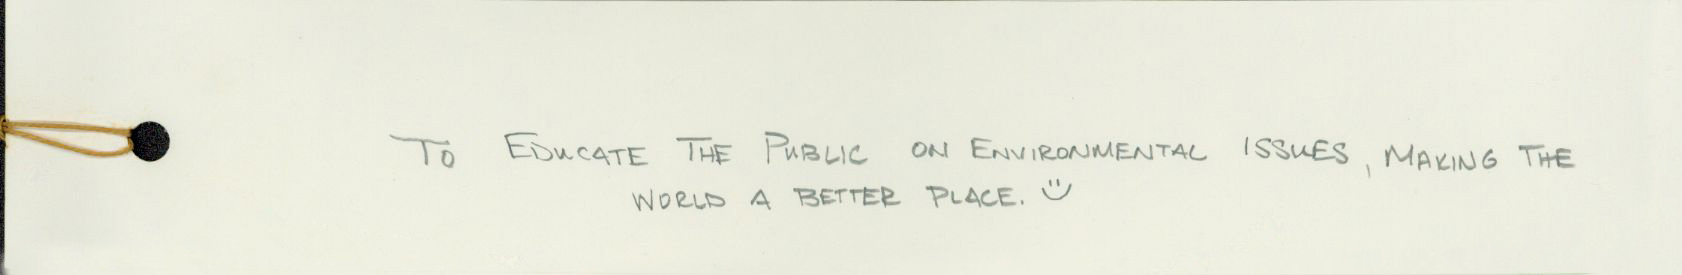 To EDUCATE THE PUBLIC ON ENVIRONMENTAL ISSUES, MAKING THE
WORLD A BETTER PLACE. Ü